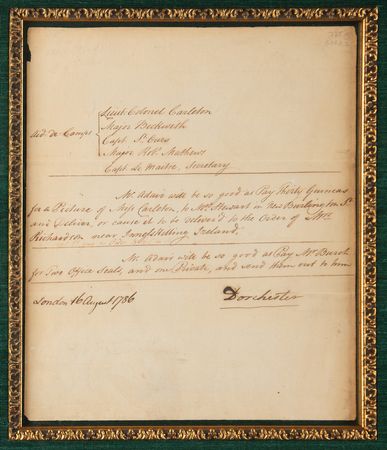 Aid de Camps
Lieut: Colonel Carleton
Major Beckwith
Capt. St. Ours
Major Robt. Mathews
Capt. Le Maitre, Secretary
Mr. Adair will be so good as Pay Thirty Guineas
for a Picture of Miss Carleton, to Mr. Stewart in New Burlington St.
and Deliver, or cause it to be deliver'd to the Order of Mrs.
Richardson near Inneskilling Ireland.
Mr. Adair will be so good as Pay Mr. Burch
for Two Office Seals, and one Private, and send them out to him
London 16 August 1786
Dorchester